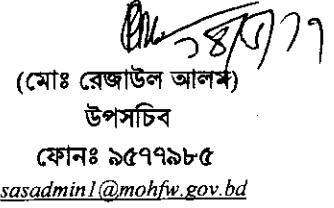 (মোঃ রেজাউল আলম)
উপসচিব
ফোনঃ ৯৫৭৭৯৮৫
sasadmin1@mohfw.gov.bd